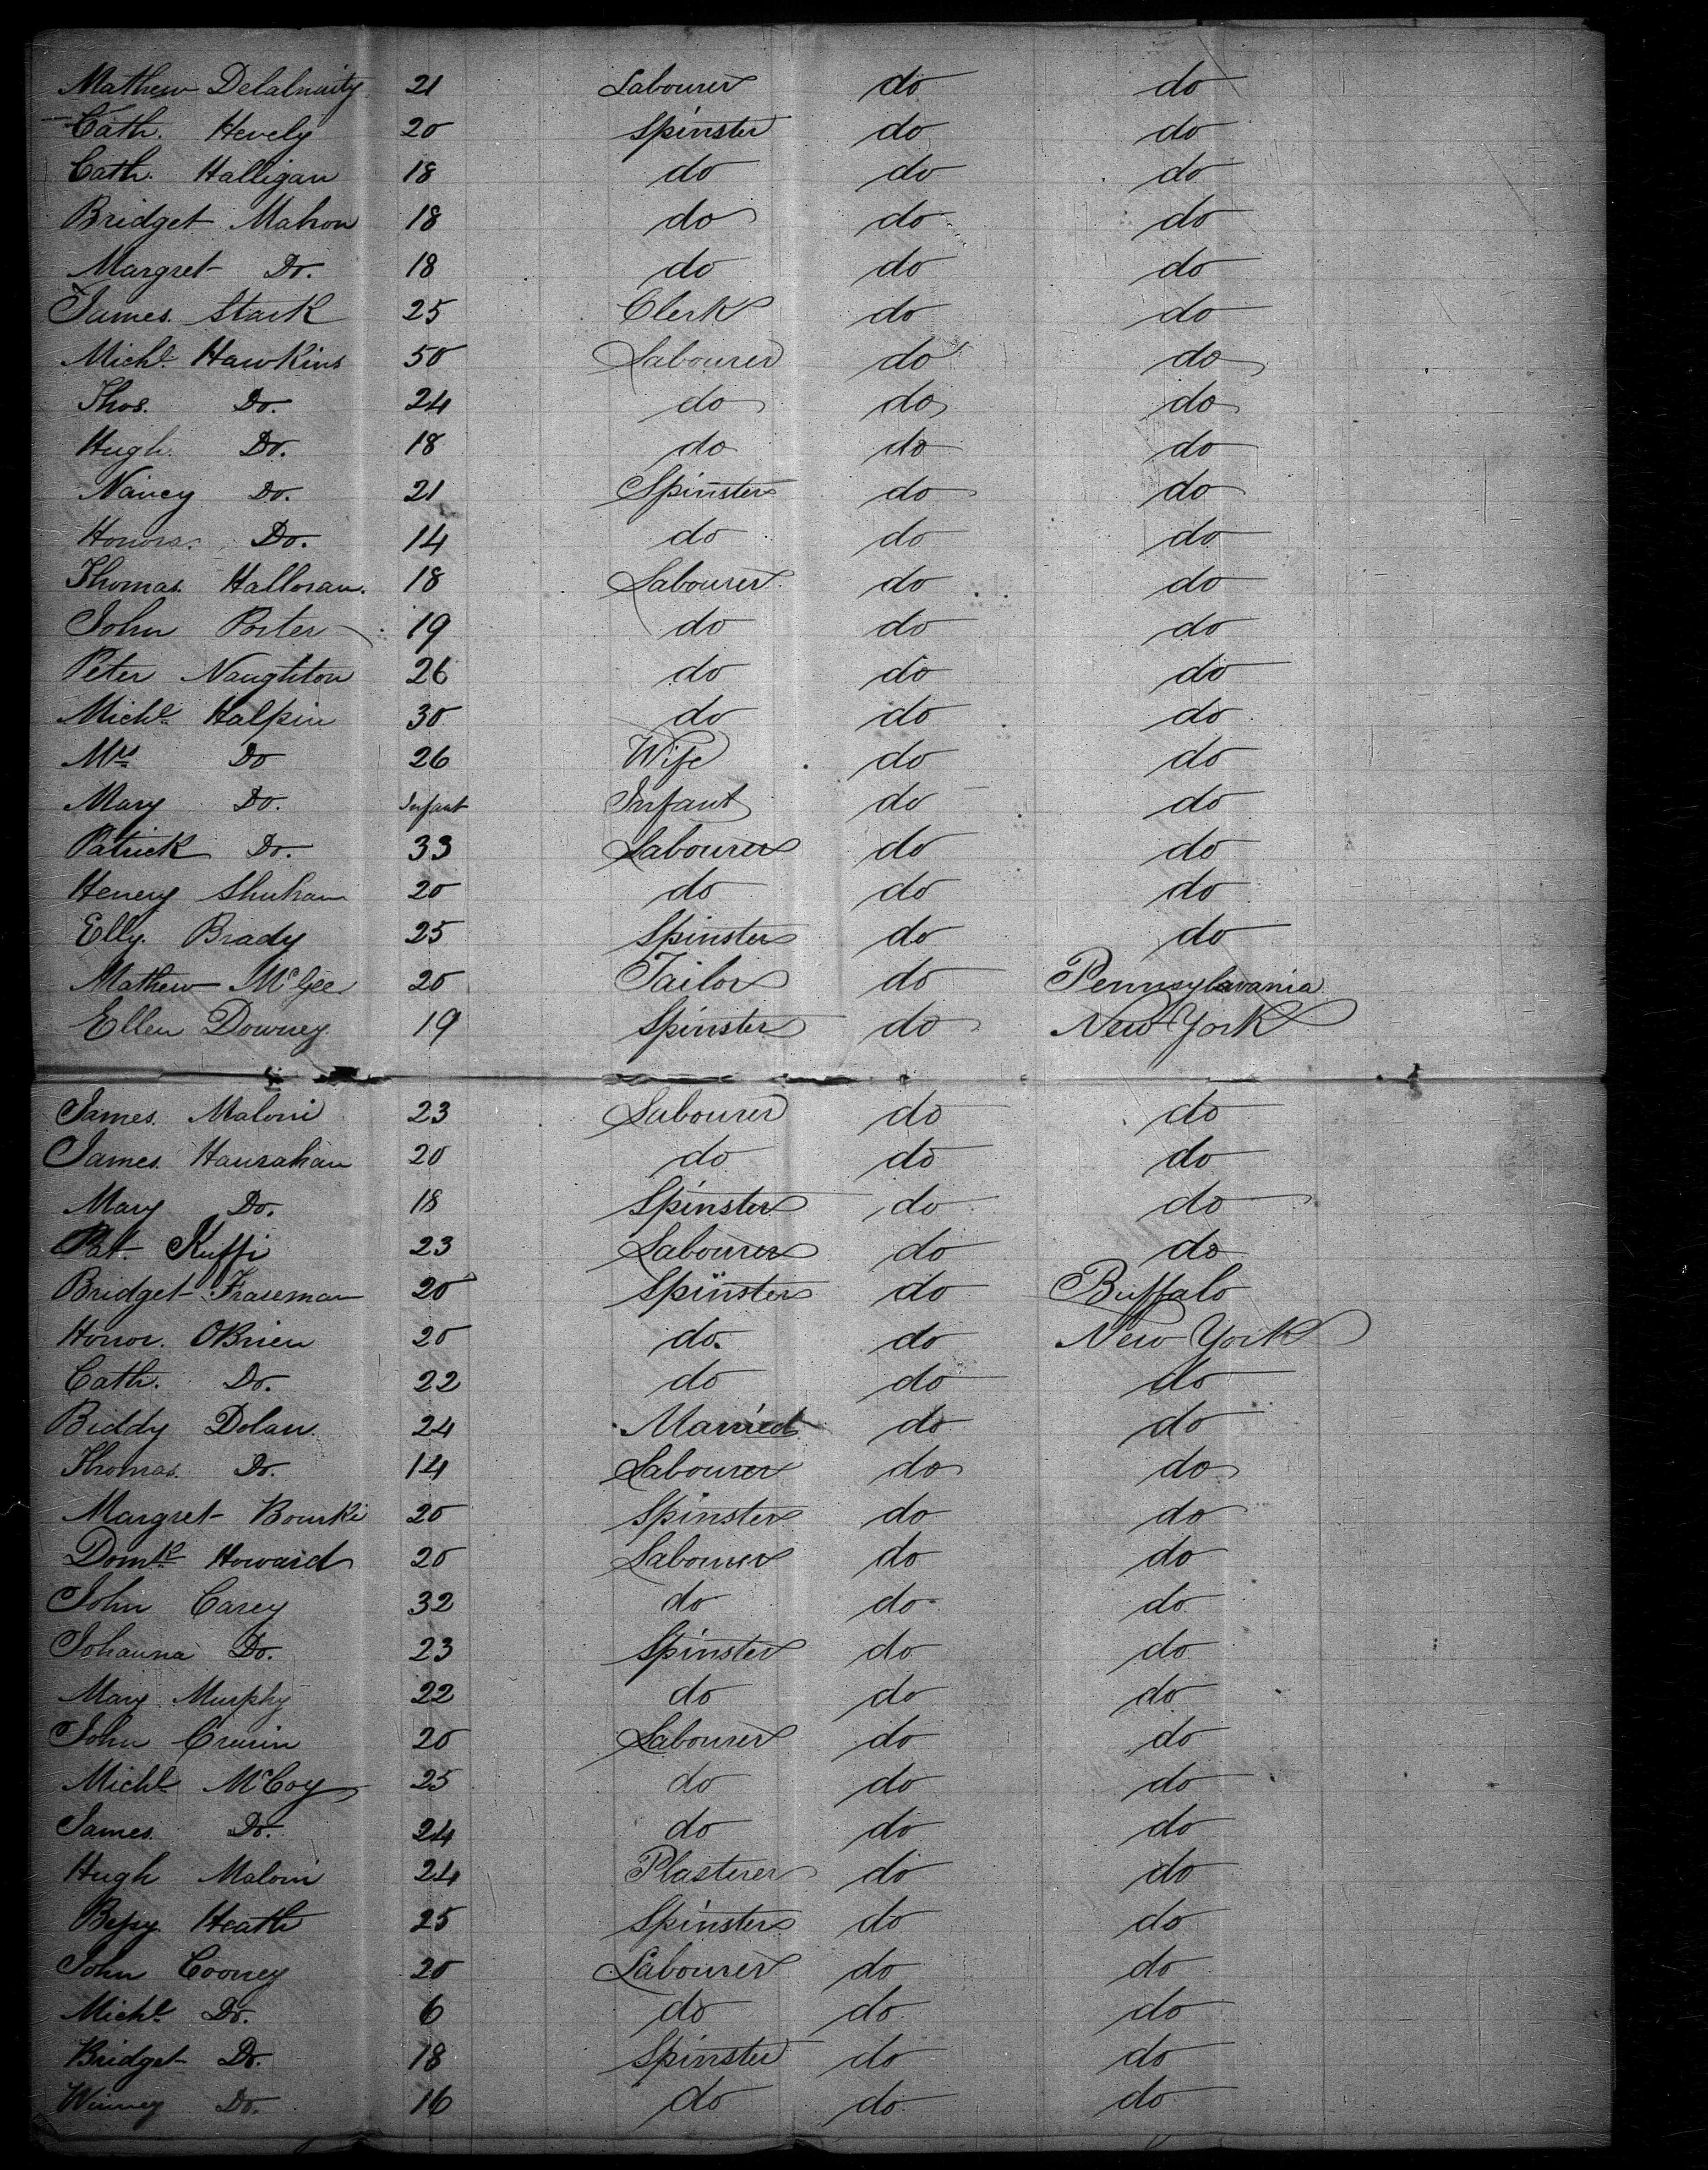 Mathew Delahuity 21 Labourer do do
Cath. Hevely 20 Spinster do do
Cath. Halligan 18 do do do
Bridget Mahon 18 do do do
Margret Do. 18 do do do
James Stark 25 Clerk do do
Michl. Hawkins 50 Labourer do do
Thos. Do. 24 do do do
Hugh Do. 18 do do do
Nancy Do. 21 Spinster do do
Honora. Do. 14 do do do
Thomas Halloran. 18 Labourer do do
John Porter 19 do do do
Peter Naughton 26 do do do
Michl. Halpin 30 do do do
Mrs Do 26 Wife do do
Mary Do. Infant Infant do do
Patrick Do. 33 Labourer do do
Henery Shuhan 20 do do do
Elly. Brady 25 Spinster do do
Mathew McGee 20 Tailor do Pennsylavania
Ellen Downey 19 Spinster do New York
James Maloni 23 Labourer do do
James Hanrahan 20 do do do
Mary Do. 18 Spinster do do
Pat. 23 Labourer do do
Bridget Fraseman 20 Spinster do Buffalo
Honor. OBrien 20 do. do New York
Cath. Do. 22 do do do
Biddy Dolan 24 Married do do
Thomas Do. 14 Labourer do do
Margret Bourke 20 Spinster do do
Domk. Howard 20 Labourer do do
John Carey 32 do do do
Johanna Do. 23 Spinster do do
Mary Murphy 22 do do do
John 20 Labourer do do
Michl. McCoy 25 do do do
James Do. 24 do do do
Hugh Maloni 24 Plasterer do do
Bessy Heath 25 Spinster do do
John Cooney 20 Labourer do do
Michl. Do. 6 do do do
Bridget Do. 18 Spinster do do
Winney Do. 16 do do do